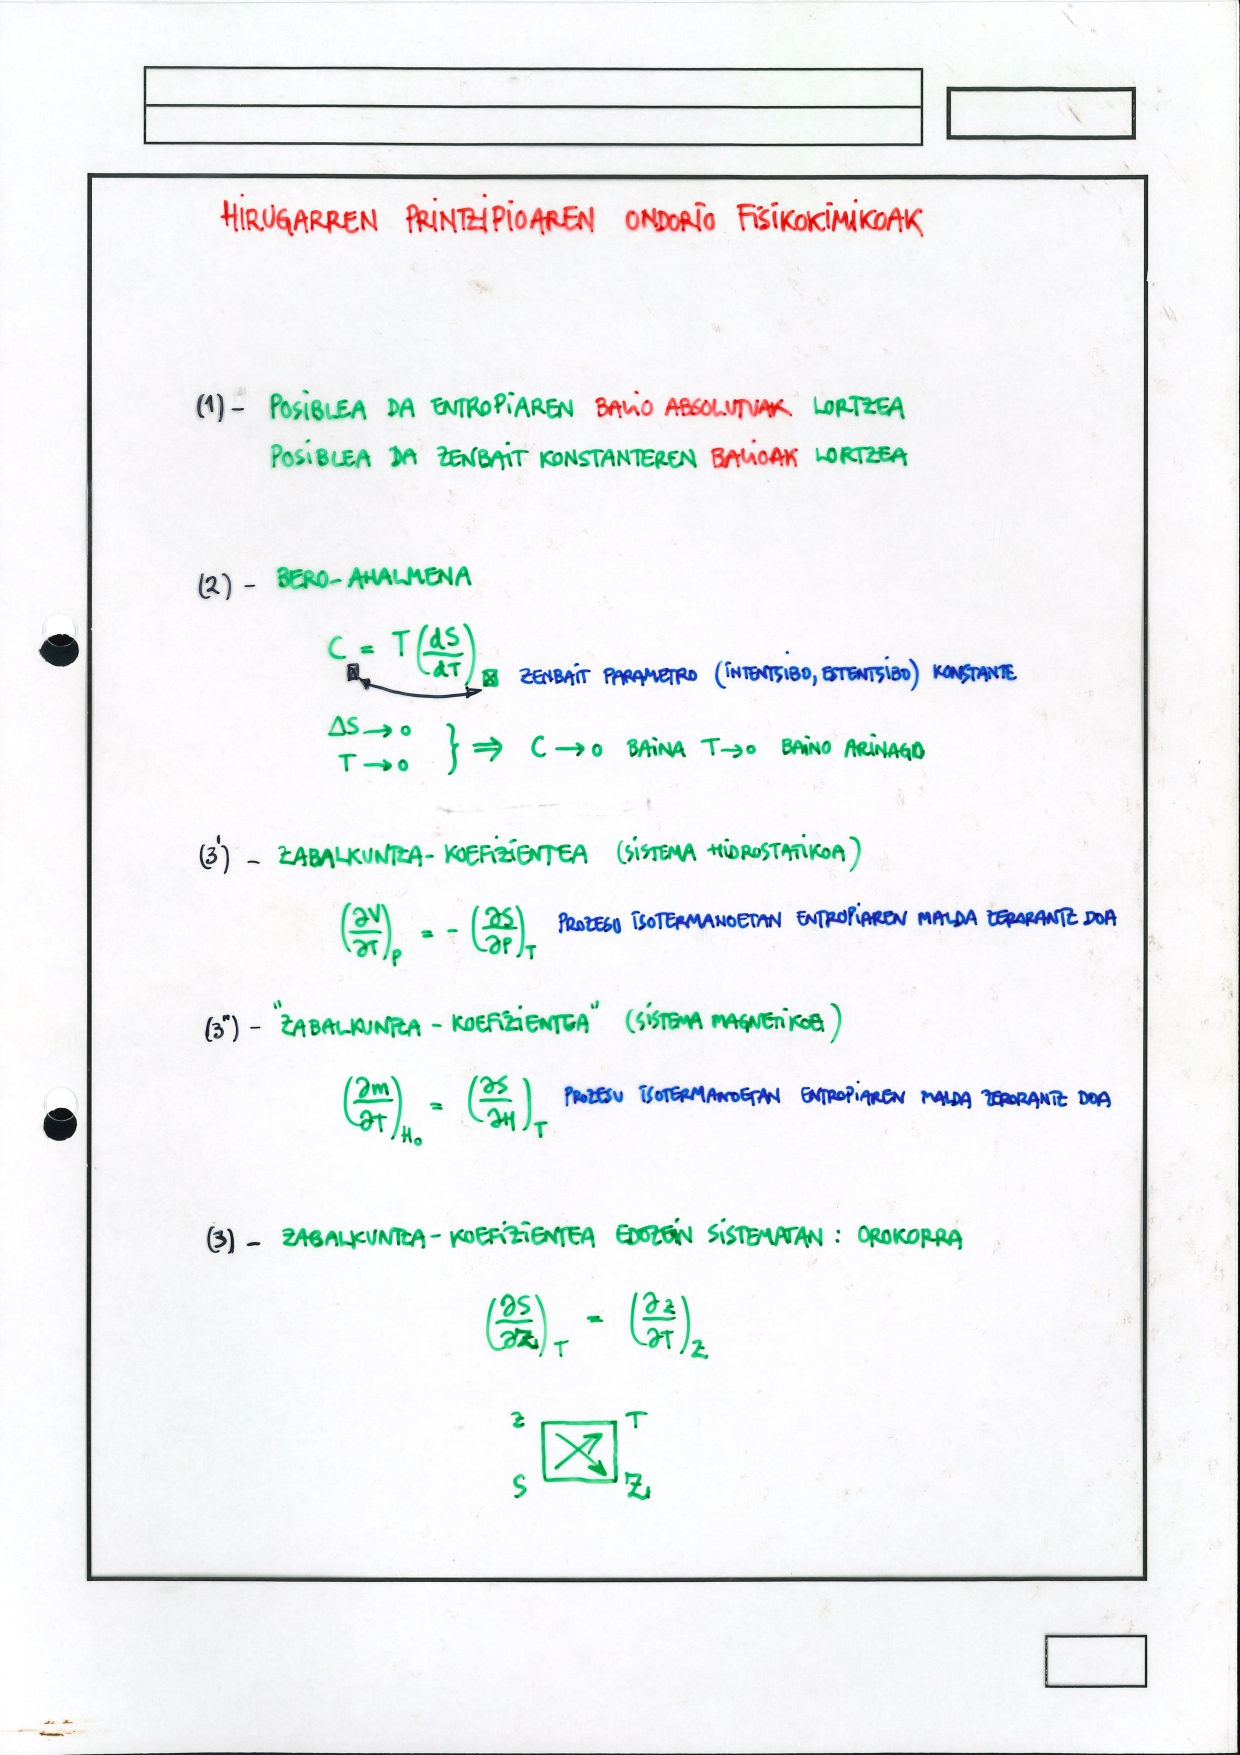 HIRUGARREN PRINTZIPIOAREN ONDORIO FISIKOKIMIKOAK
(1) - POSIBLEA DA ENTROPIAREN BALIO ABSOLUTUAK LORTZEA
POSIBLEA DA ZENBAIT KONSTANTEREN BALIOAK LORTZEA
(2) - BERO-AHALMENA
C = T (dS/dT) ZENBAIT PARAMETRO (INTENTSIBO, ESTENTSIBO) KONSTANTE
ΔS → 0
T → 0 } ⇒ C → 0 BAINA T → 0 BAINO ARINAGO
(3') - ZABALKUNTZA-KOEFIZIENTEA (SISTEMA HIDROSTATIKOA)
(∂V/∂T)_P = - (∂S/∂P)_T PROZESU ISOTERMANOETAN ENTROPIAREN MALDA ZERORANTZ DOA
(3") - "ZABALKUNTZA-KOEFIZIENTEA" (SISTEMA MAGNETIKOA)
(∂m/∂T)_H₀ = (∂S/∂H)_T PROZESU ISOTERMANOETAN ENTROPIAREN MALDA ZERORANTZ DOA
(3) - ZABALKUNTZA-KOEFIZIENTEA EDOZEIN SISTEMATAN : OROKORRA
(∂S/∂Z)_T = (∂z/∂T)_Z
z T
S Z